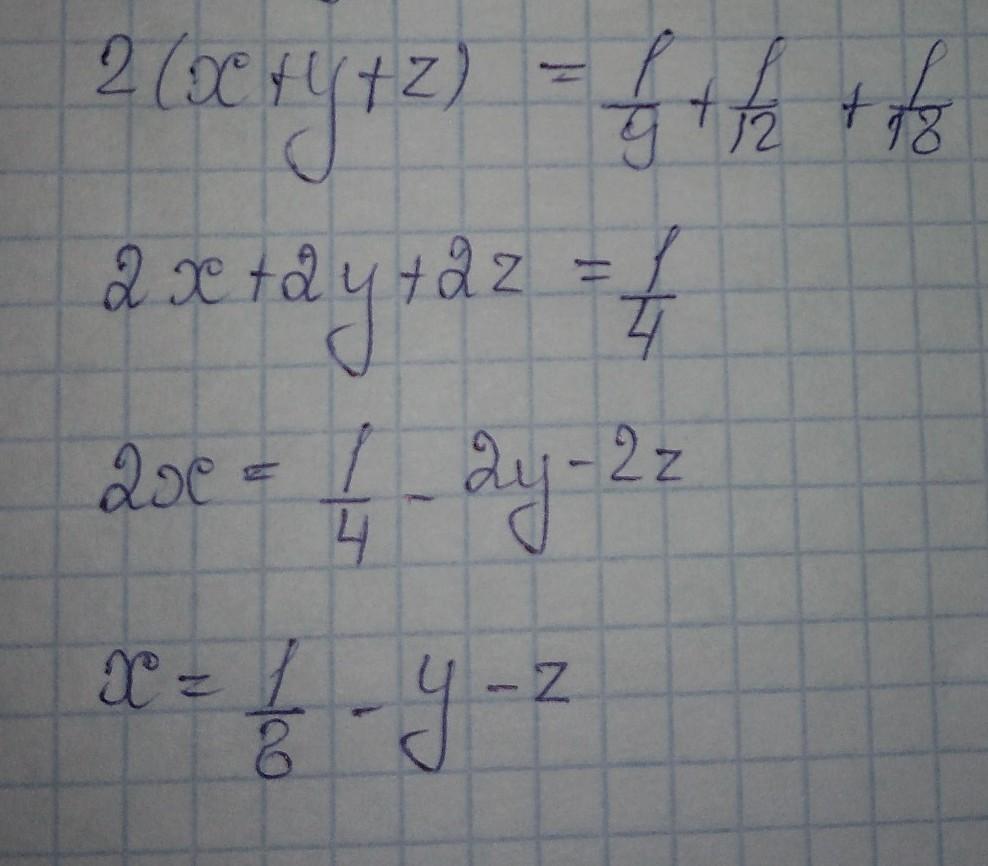 2(x+y+z) = 1/9 + 1/12 + 1/18
2x+2y+2z = 1/4
2x = 1/4 - 2y - 2z
x = 1/8 - y - z